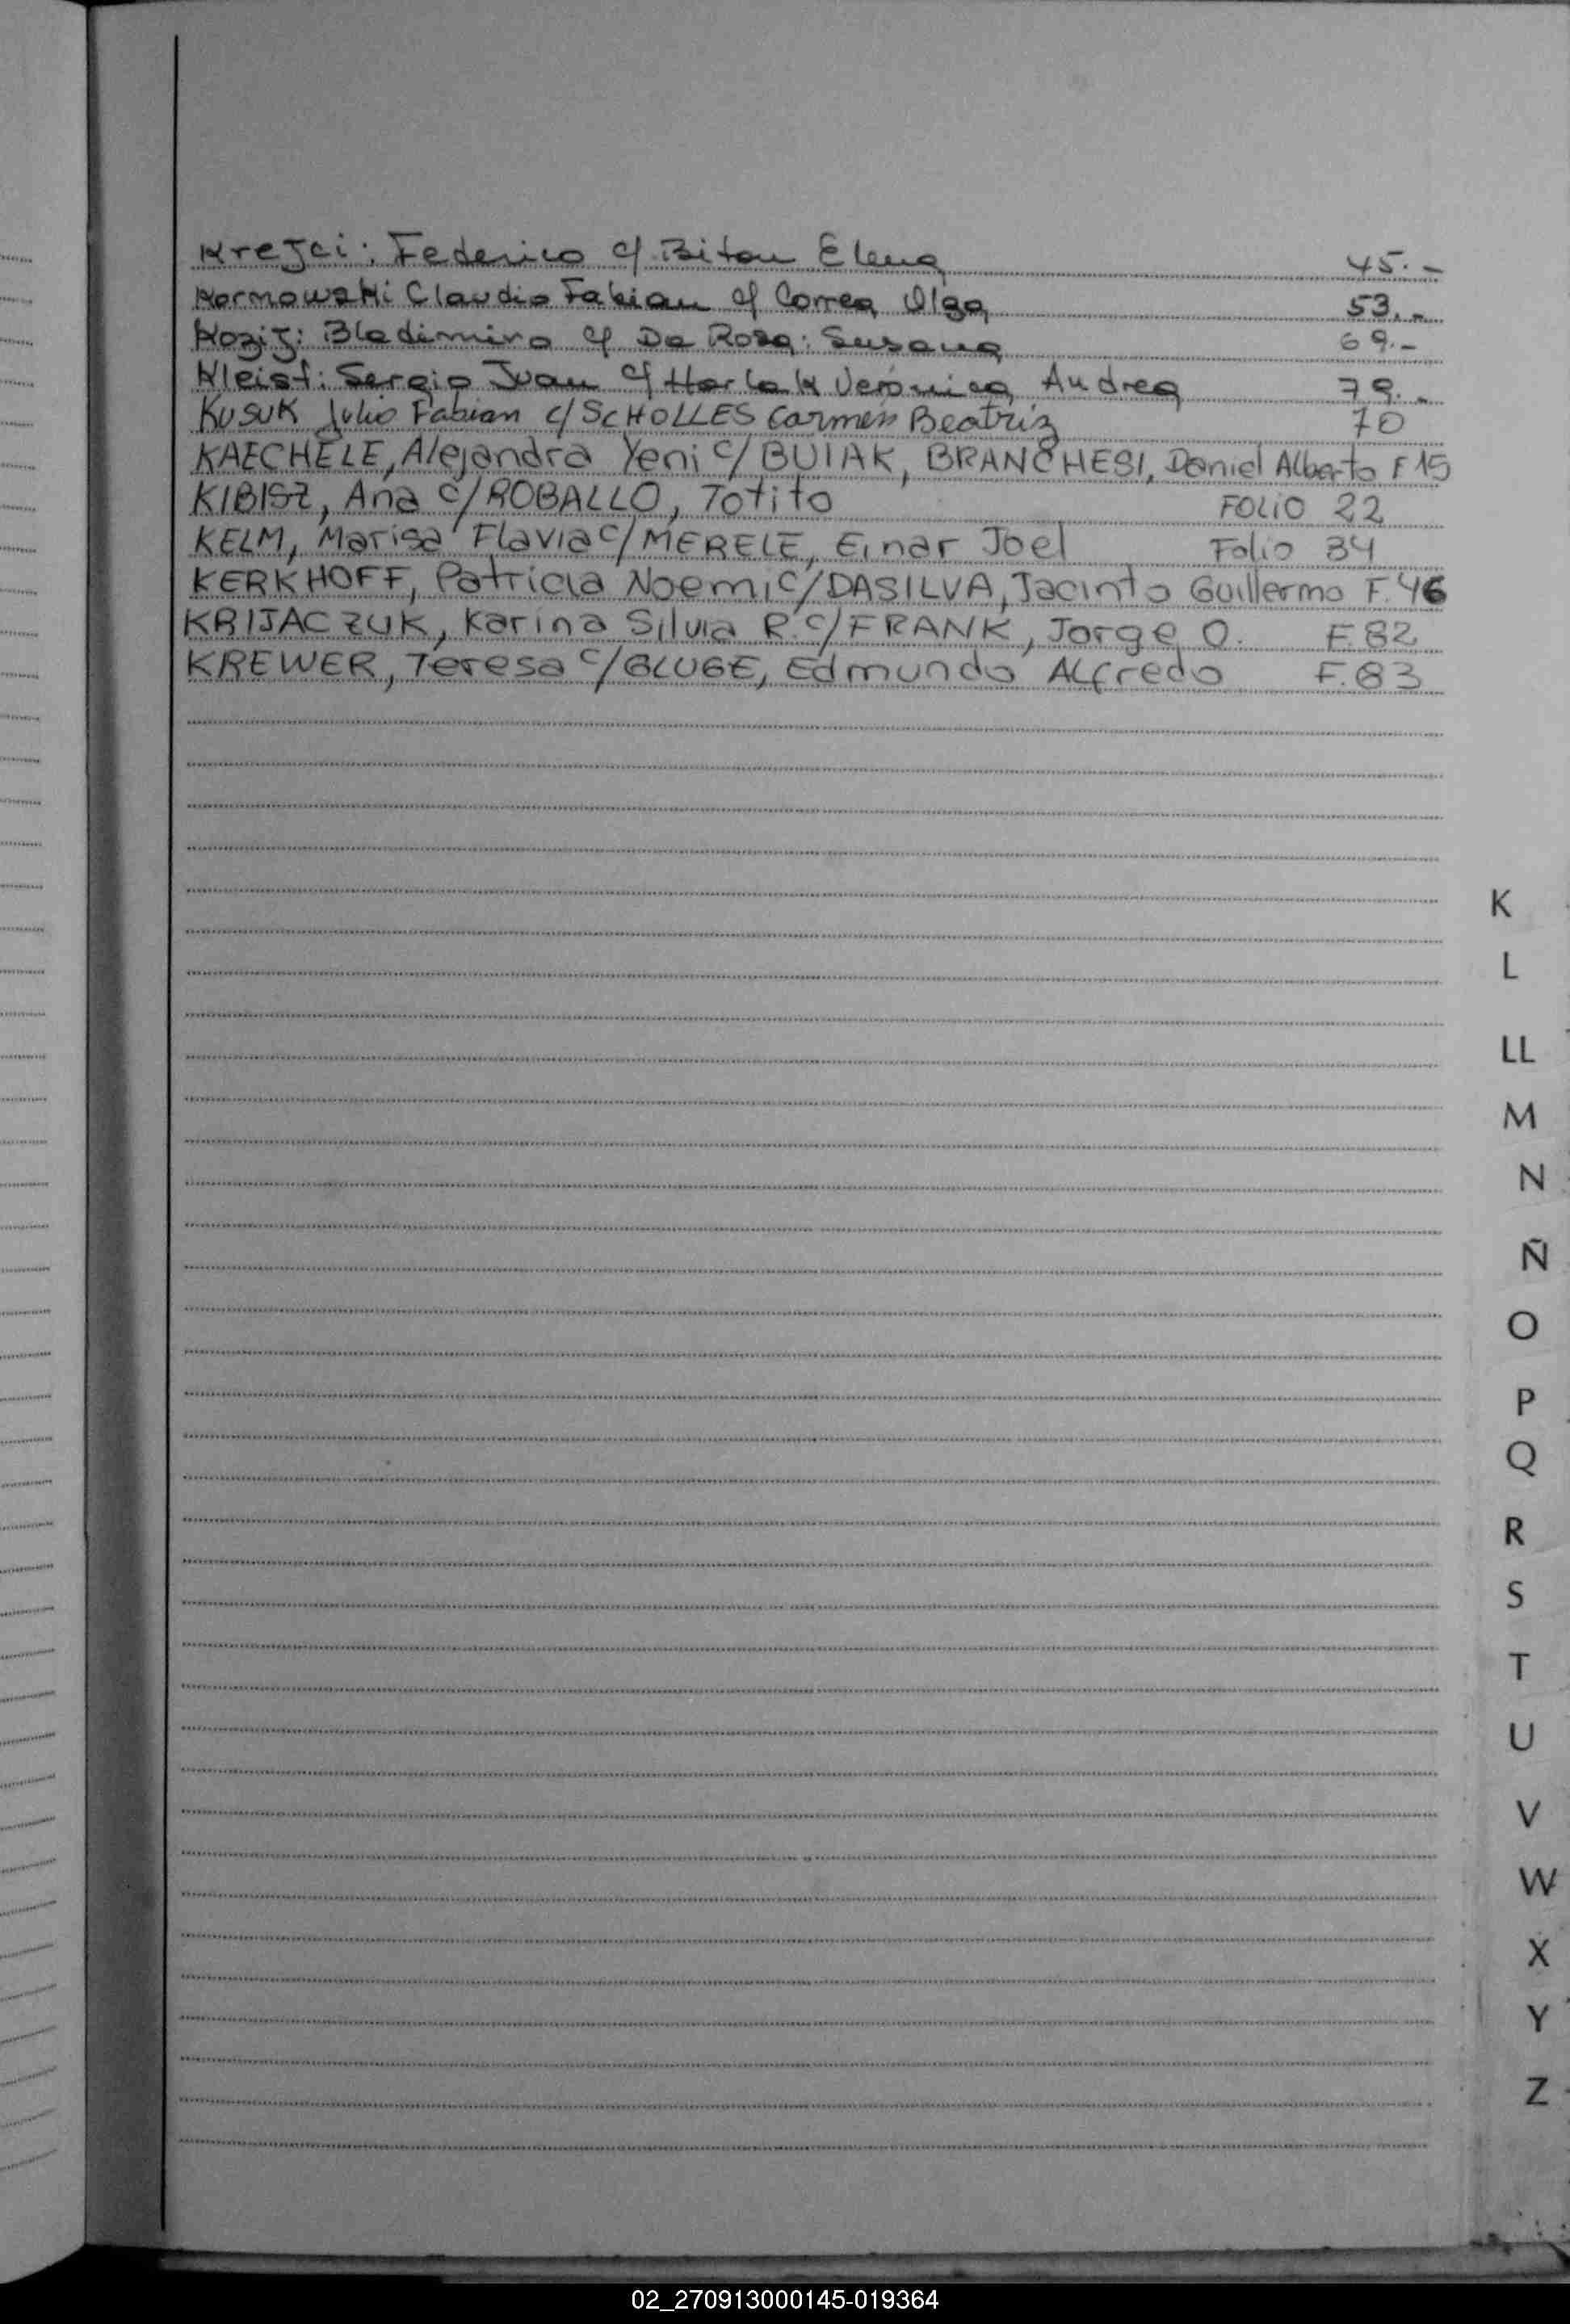 Krejci: Federico c/ Biton Elena 45.-
Kornowski Claudio Fabian c/ Correa Olga 53.-
Kozij: Bladimiro c/ Da Rosa: Susana 69.-
Kleist: Sergio Juan c/ Horlak Verónica Andrea 79.-
KUSUK Julio Fabian c/ SCHOLLES Carmen Beatriz 70
KAECHELE, Alejandra Yeni c/ BUIAK, BRANCHESI, Daniel Alberto F 15
KIBISZ, Ana c/ ROBALLO, Totito FOLIO 22
KELM, Marisa Flavia c/ MERELE, Einar Joel Folio 34
KERKHOFF, Patricia Noemi c/ DASILVA, Jacinto Guillermo F. 46
KRIJACZUK, Karina Silvia R. c/ FRANK, Jorge O. F. 82
KREWER, Teresa c/ GLUGE, Edmundo Alfredo F. 83
K
L
LL
M
N
Ñ
O
P
Q
R
S
T
U
V
W
X
Y
Z
02_270913000145-019364